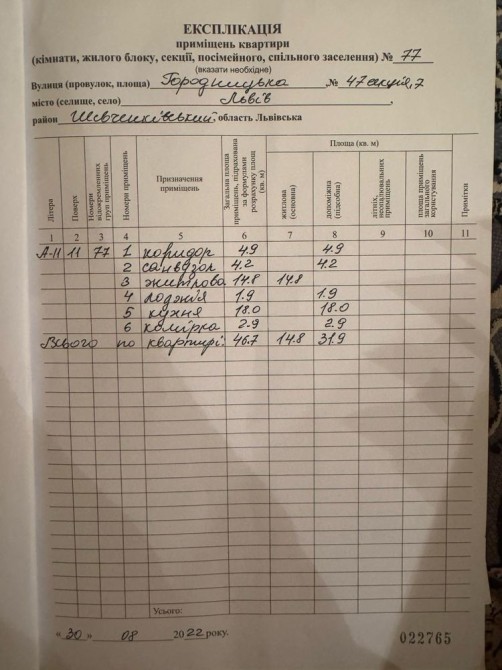 ЕКСПЛІКАЦІЯ
приміщень квартири
(кімнати, жилого блоку, секції, посімейного, спільного заселення) № 77
(вказати необхідне)
Вулиця (провулок, площа) Городницька № 47 секція, 7
місто (селище, село) Львів,
район Шевченківський, область Львівська
Літера Поверх Номери відокремлених груп приміщень Номери приміщень Призначення приміщень Загальна площа приміщень, підрахована за формулами розрахунку площ (кв. м) Площа (кв. м)
житлова (основна) допоміжна (підсобна) літніх, неопалювальних приміщень площа приміщень загального користування Примітки
1 2 3 4 5 6 7 8 9 10 11
А-11 11 77 1 коридор 4.9 4.9
2 санвузол 4.2 4.2
3 житлова 14.8 14.8
4 лоджія 1.9 1.9
5 кухня 18.0 18.0
6 комірка 2.9 2.9
Всього по квартирі: 46.7 14.8 31.9
Усього:
« 30 » 08 2022 року.
022765